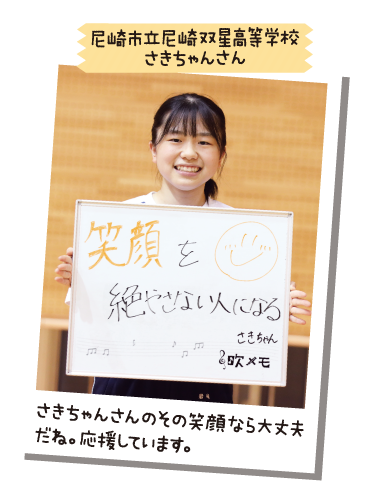 尼崎市立尼崎双星高等学校
さきちゃんさん
笑顔を
絶やさない人になる
さきちゃん
吹メモ
さきちゃんさんのその笑顔なら大丈夫
だね。応援しています。